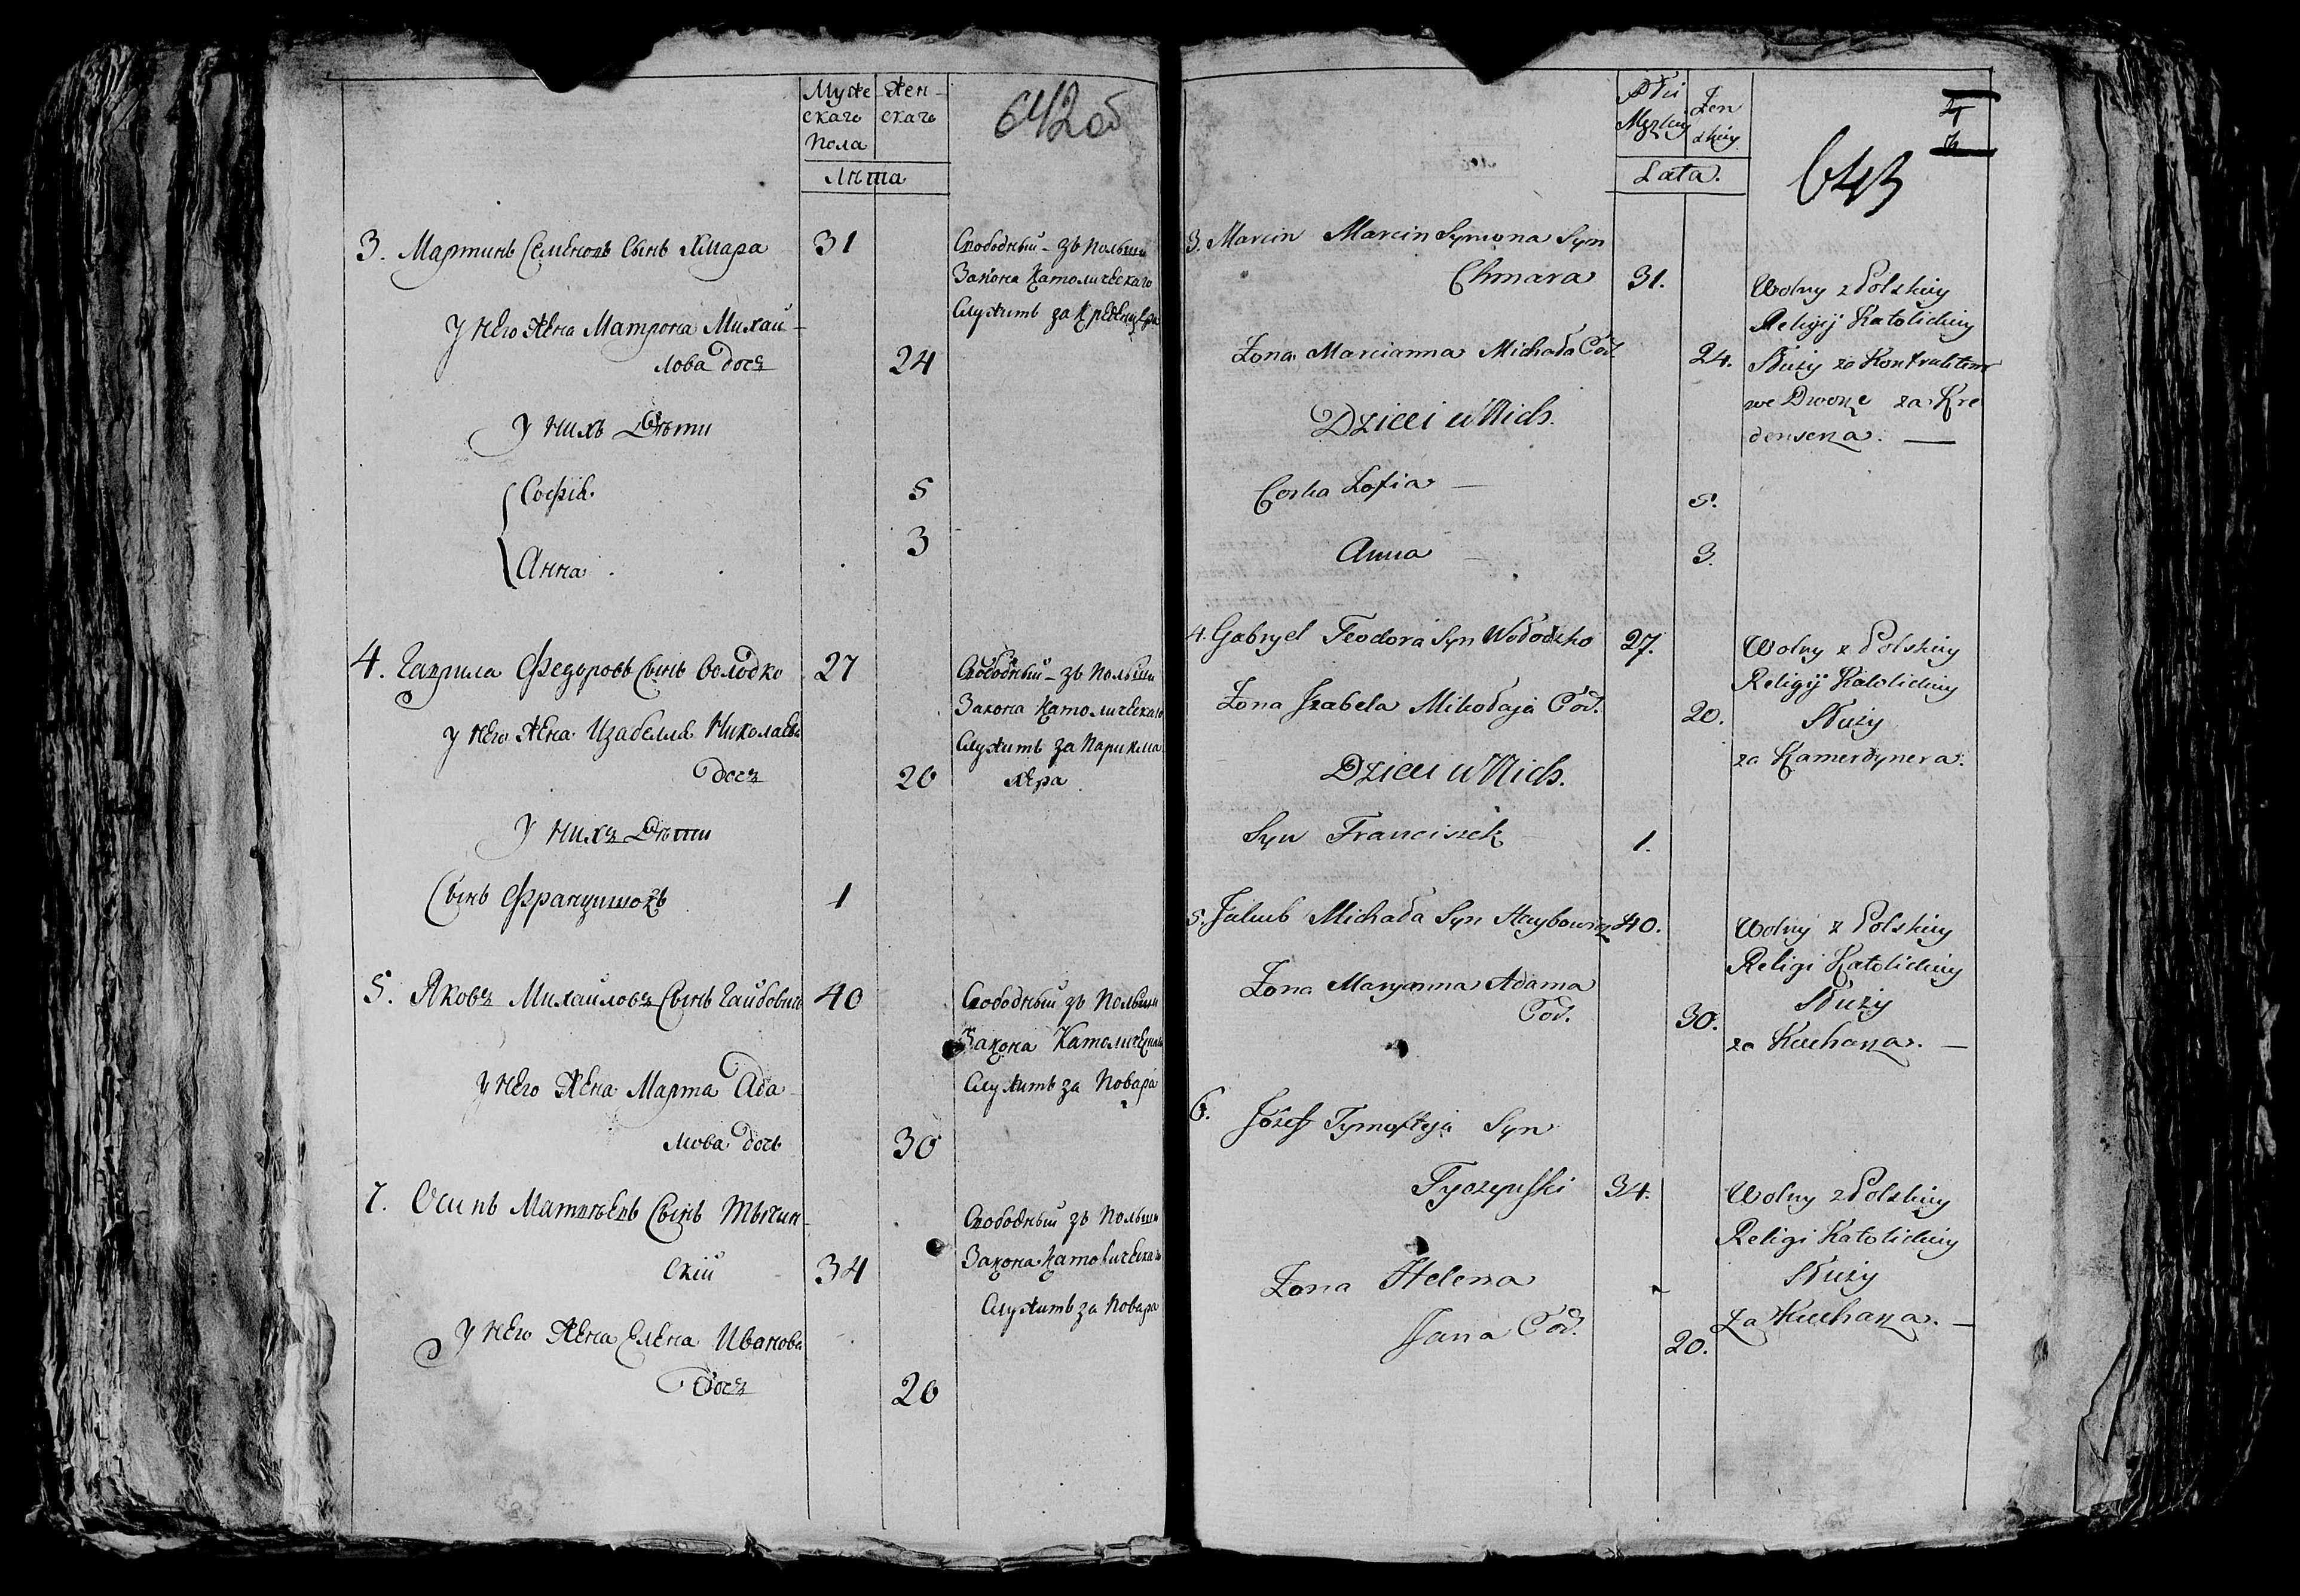 Муже
скаго
Пола
Жен-
скаго
Лѣта
642об
3. Мартинъ Семеновъ Сынъ Хмара 31
Свободный - зъ Польши
Закона Католическаго
Служитъ за Креденцера
У Него Жена Матрона Михай-
лова дочь 24
У нихъ Дѣти
София 5
Анна 3
4. Гаврила Федоровъ Сынъ Володко 27
Свободный - зъ Польши
Закона Католическаго
Служитъ за Парикма
хера
у Него Жена Изабелла Николаева
дочь 20
У нихъ Дѣти
Сынъ Францишокъ 1
5. Яковъ Михайловъ Сынъ Гайбовичь 40
Свободный зъ Польши
Закона Католическаго
Служитъ за Повара
У Него Жена Марта Ада-
мова дочь 30
7. Осипъ Матвѣевъ Сынъ Тычин-
скій 34
Свободный зъ Польши
Закона Католическаго
Служитъ за Повара
У Него Жена Елена Иванова
дочь 20
Płci
Męzkiy
Żen
skiey
Lata.
643
3. Marcin Marcin Symona Syn
Chmara 31.
Wolny z Polskiey
Religij Katolickiey
Służy za Kontraktem
we Dworze za Kre
denserza. —
Żona Marcianna Michała Cód. 24.
Dzieci u Nich.
Corka Zofia — 5.
Anna — 3.
4. Gabryel Teodora Syn Wołodzko 27.
Wolny z Polskiey
Religij Katolickiey
Służy
za Kamerdynera.
Żona Izabela Mikołaja Cód. 20.
Dzieci u Nich.
Syn Franciszek — 1.
5. Jakub Michała Syn Haybowicz 40.
Wolny z Polskiey
Religi Katolickiey
Służy
za Kucharza. —
Żona Maryanna Adama
Cód. 30.
6. Józef Tymofteja Syn
Tyczynski 34.
Wolny z Polskiey
Religi Katolickiey
Służy
Za Kucharza. —
Żona Helena
Jana Cód. 20.